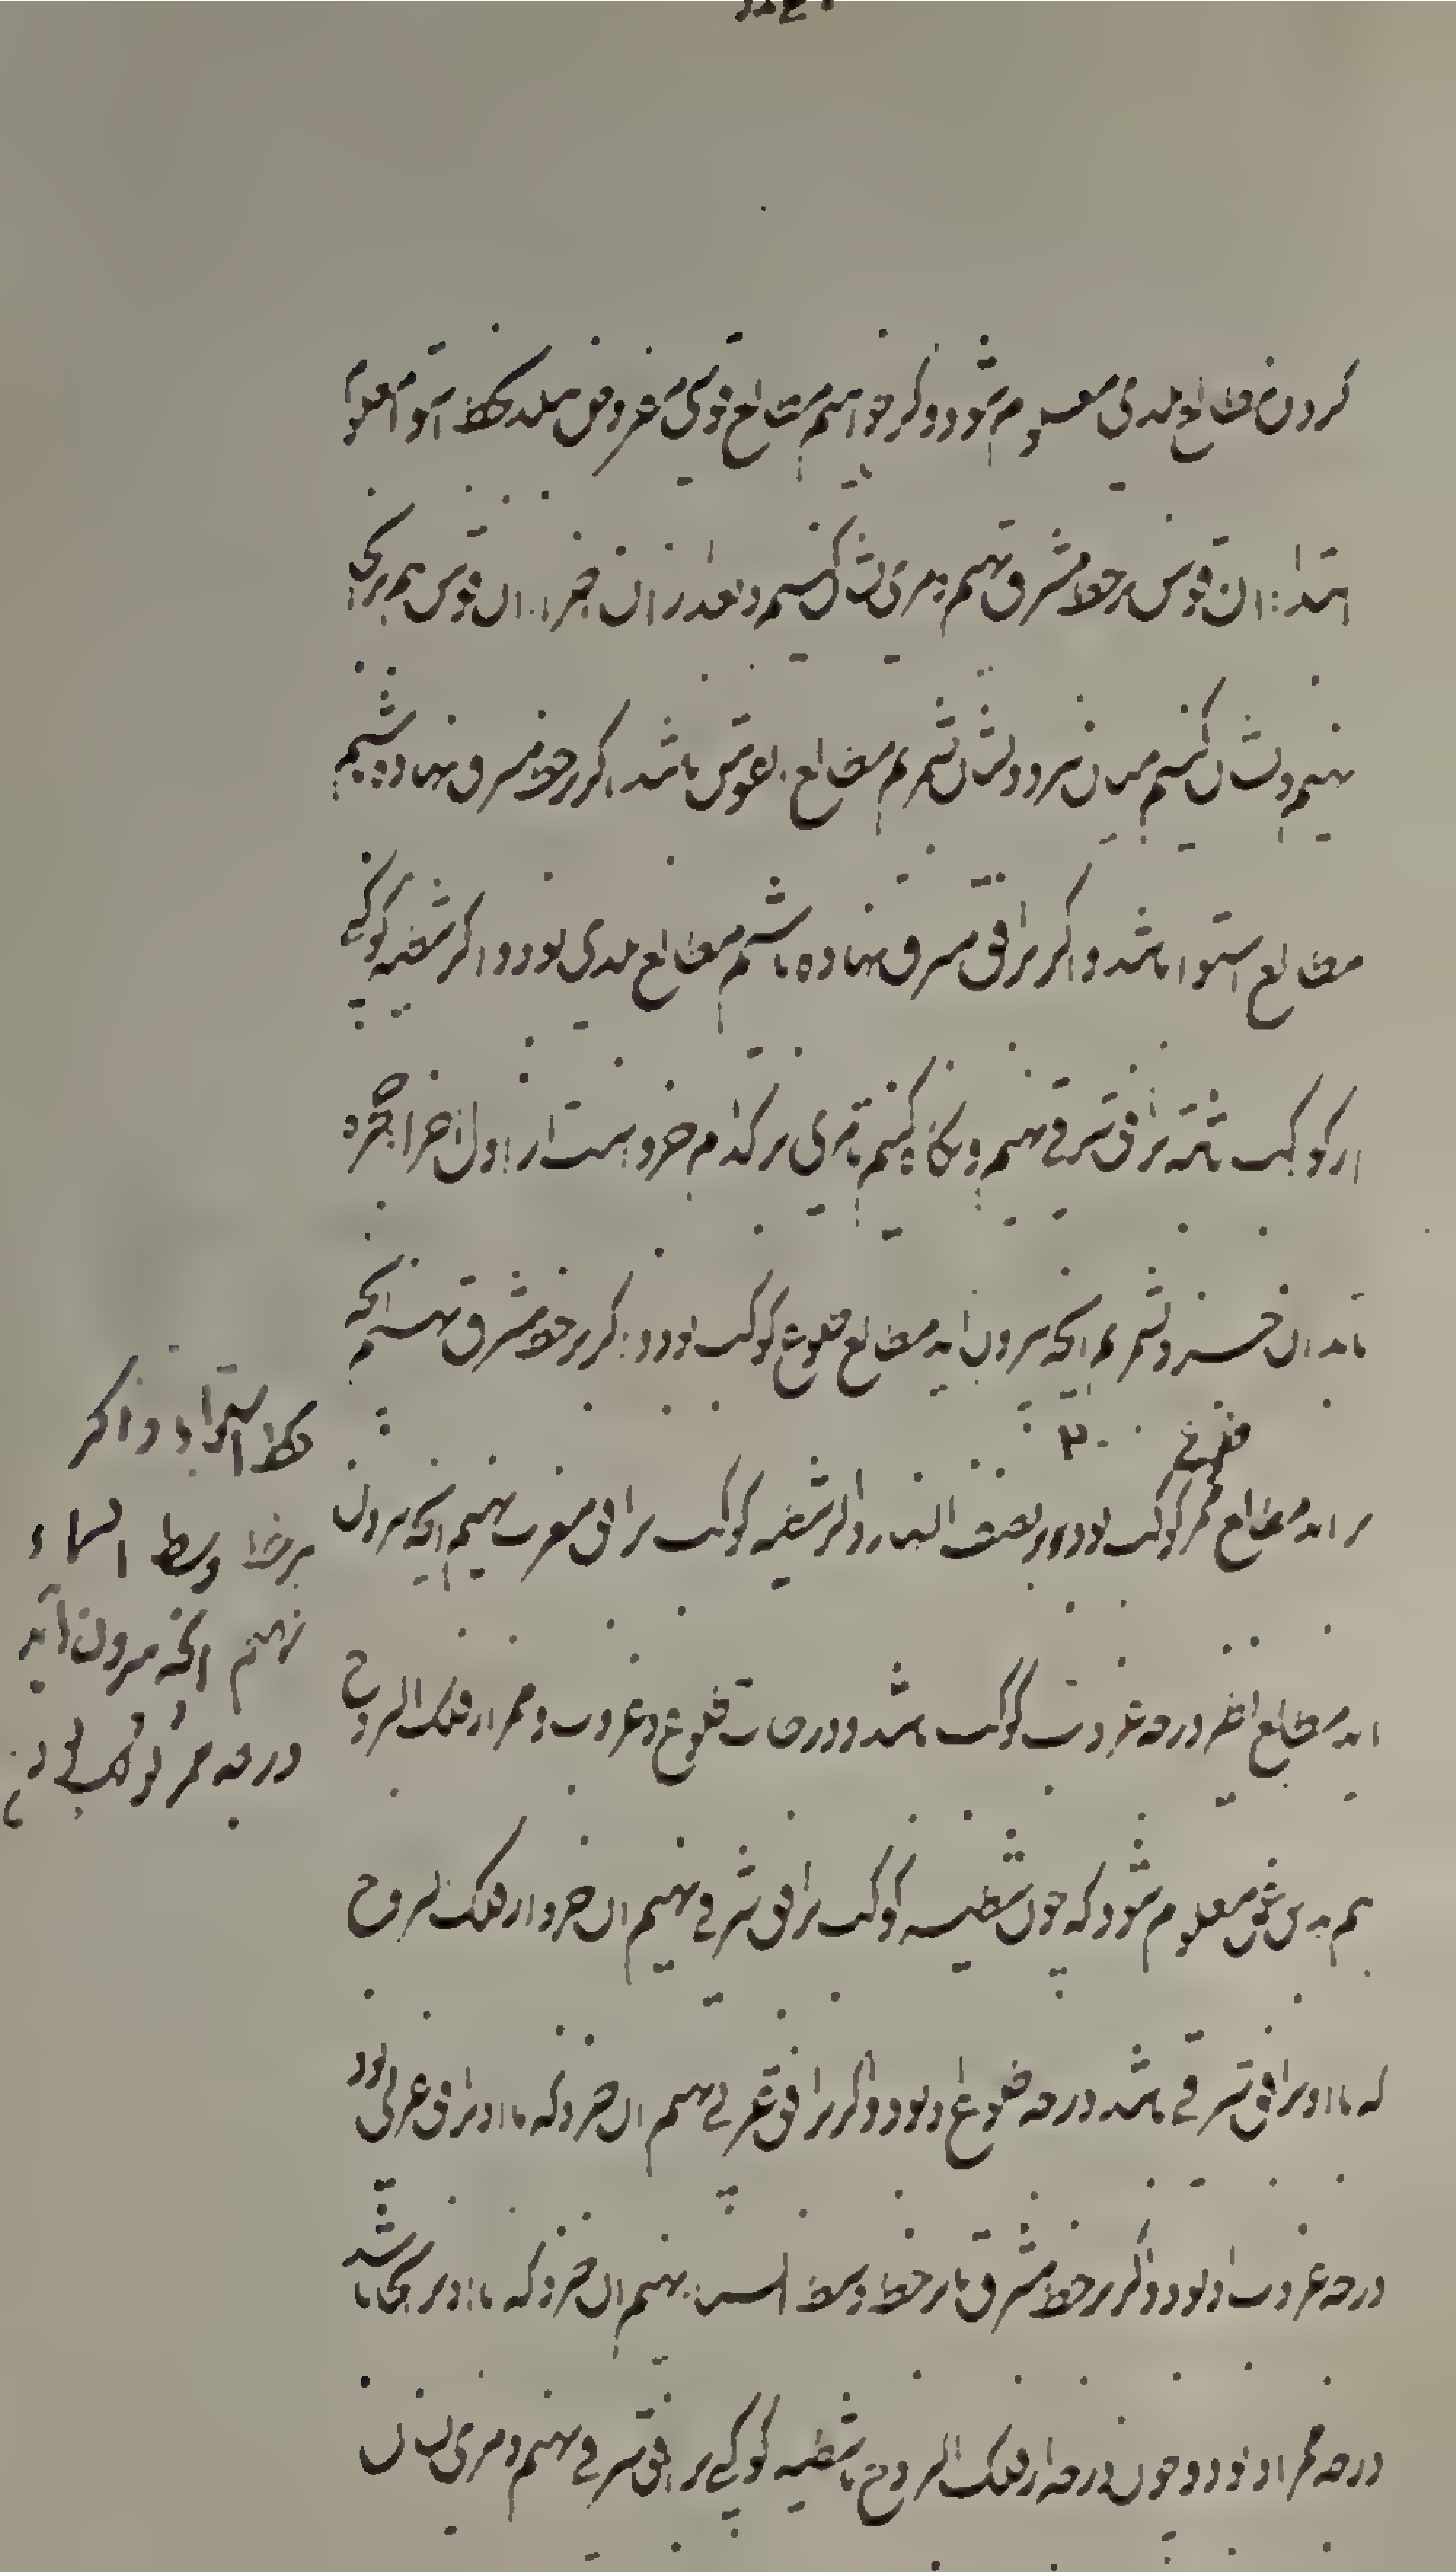 کردن مطالع بلدی معلوم شود و اگر خواهیم مطالع قوسی مفروض ببلد بخط استوا معلوم
ابتدا ان قوس بر خط مشرق نهیم و مری نشان کنیم و بعد از ان جزو ان قوس هم بر انجا
نهیم و نشان کنیم میان هر دو نشان شمریم مطالع قوس باشد اگر بر خط مشرق نهاده باشیم
مطالع استوا باشد و اگر بر افق مشرق نهاده باشیم مطالع بلدی بود و اگر شظیه کوکبی
از کوکب ثابته بر افق شرقی نهیم و نگاه کنیم تا مری بر کدام جزوست از اول اجزا حجره
بدان جزو شمریم انچه بیرون اید مطالع طلوع کوکب بود و اگر بر خط مشرق نهیم انچه
بر اید مطالع ممر کوکب بود بنصف النهار و اگر شظیه کوکب بر افق مغرب نهیم انچه بیرون
اید مطالع نظیر درجه غروب کوکب باشد و درجات طلوع و غروب و ممر از فلک البروج
هم بدین نحو معلوم شود که چون شظیه کوکب بر افق شرقی نهیم ان جزو از فلک البروج
که با او بر افق شرقی باشد درجه طلوع او بود و اگر بر افق غربی نهیم ان جزو که با او بر افق غربی بود
درجه غروب او بود و اگر بر خط مشرق یا بر خط وسط السماء نهیم ان جزو که با او بر انجا باشد
درجه ممر او بود و چون درجه از فلک البروج یا شظیه کوکبی بر افق شرقی نهیم و مری نشان
بخط استوا بود و اگر
بر خط وسط السماء
نهیم انچه بیرون آید
درجه ممر کوکب بود